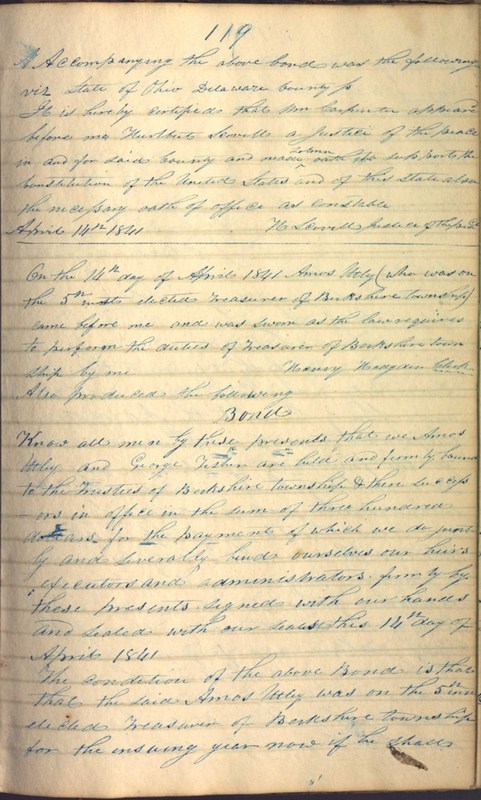 119
Accompanying the above bond was the following
viz State of Ohio Delaware County ss
It is hereby certified that Wm Carpenter appeard
before me Hurlbut Scovell a Justice of the peace
in and for said County and made solemn oath to support the
Constitution of the United States and of this State also
the necessary oath of office as Constable
April 14th 1841 H Scovell Justice of the peace
On the 14th day of April 1841 Amos Utley (who was on
the 5th inst elected Treasurer of Berkshire township)
came before me and was sworn as the law requires
to perform the duties of Treasurer of Berkshire town
ship by me Henry Hodgden Clerk
Also produced the following
Bond
Know all men by these presents that we Amos
Utley and George are held and firmly bound
to the Trustees of Berkshire township & there success
-ors in office in the sum of three hundred
dollars for the payment of which we do joint
ly and severally bind ourselves our heirs
executors and administrators firmly by
these presents signed with our hands
and sealed with our seals this 14th day of
April 1841
The condition of the above Bond is that
that the said Amos Utley was on the 5th inst
elected Treasurer of Berkshire township
for the insuing year now if he shall